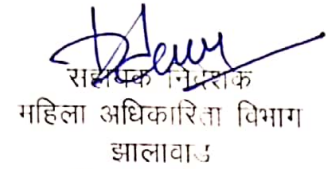 सहायक निदेशक
महिला अधिकारिता विभाग
झालावाड